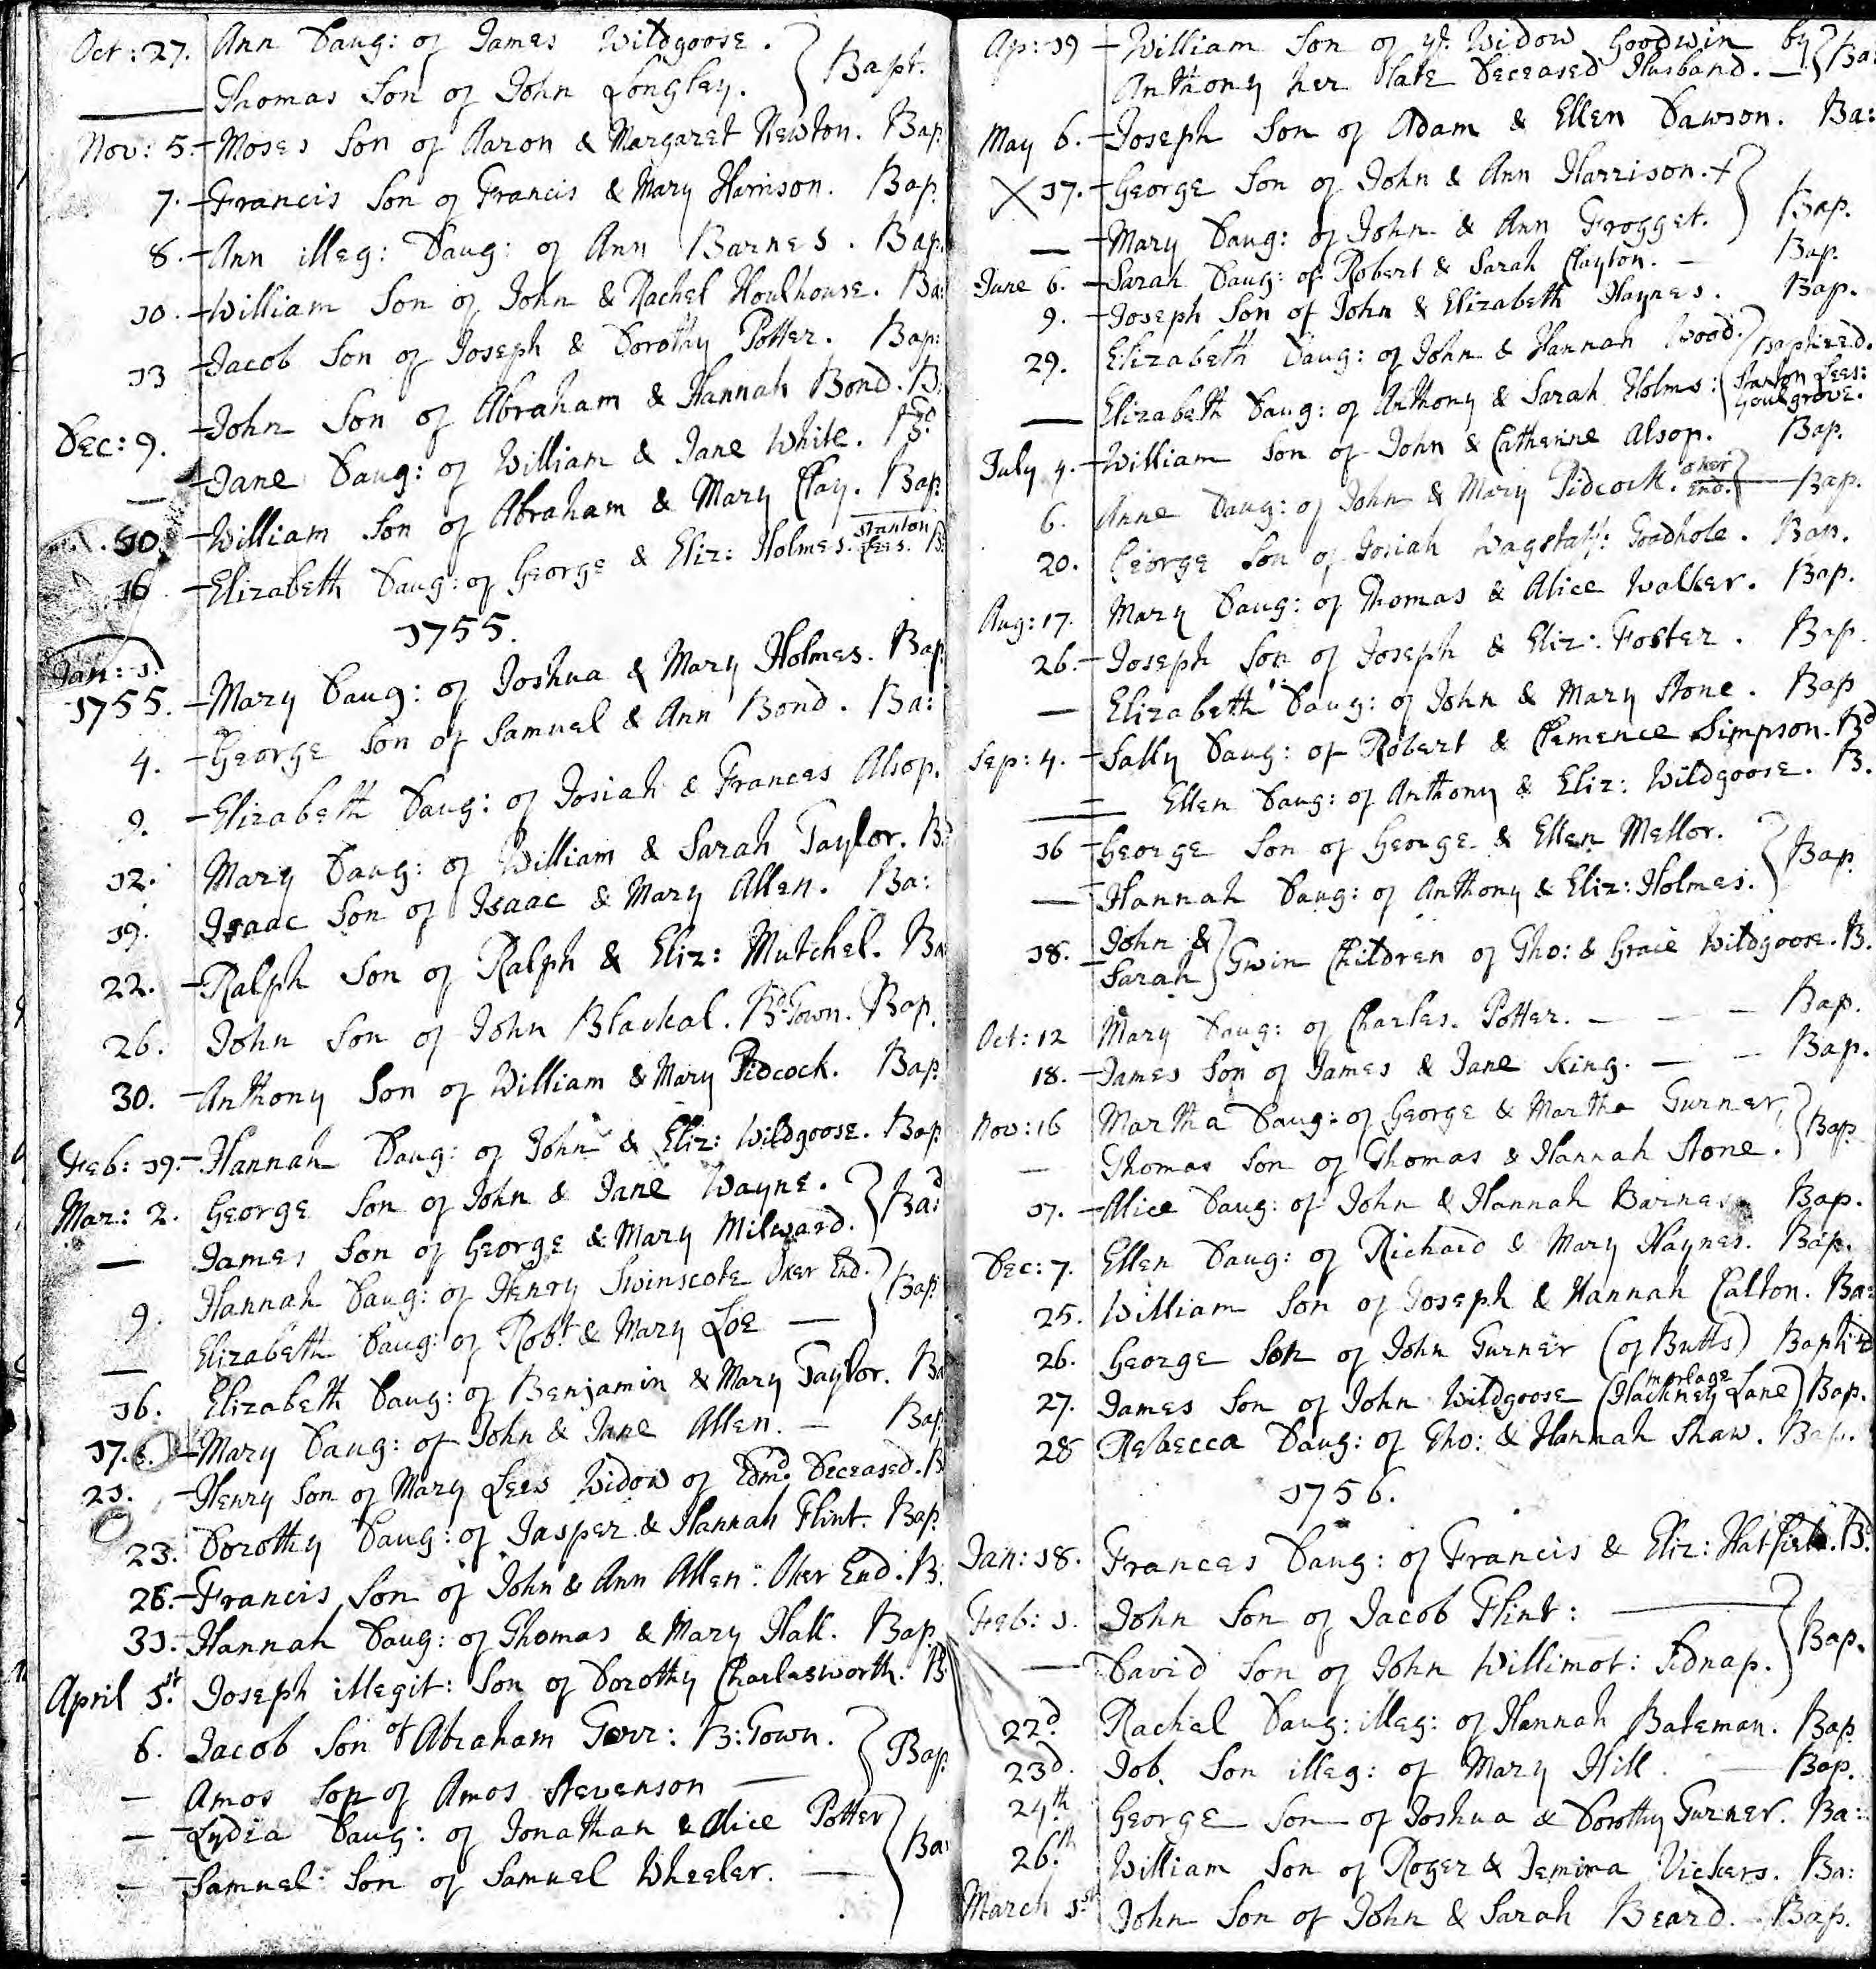 Oct: 27. Ann Daug: of James Wildgoose. } Bapt.
— Thomas Son of John Longley.
Nov: 5. Moses Son of Aaron & Margaret Newton. Bap.
7. Francis Son of Francis & Mary Harrison. Bap.
8. Ann illeg: Daug: of Ann Barnes. Bap.
10. William Son of John & Rachel Houlhouse. Ba:
13 Jacob Son of Joseph & Dorothy Potter. Bap:
Dec: 9. John Son of Abraham & Hannah Bond. B:
— Jane Daug: of William & Jane White. Bd.
10. William Son of Abraham & Mary Clay. Bap.
16 Elizabeth Daug: of George & Eliz: Holmes. Stanton Lees. B:
1755.
Jan: 1.
1755. Mary Daug: of Joshua & Mary Holmes. Bap.
4. George Son of Samuel & Ann Bond. Ba:
9. Elizabeth Daug: of Josiah & Frances Alsop.
12. Mary Daug: of William & Sarah Taylor. B:
19. Isaac Son of Isaac & Mary Allen. Ba:
22. Ralph Son of Ralph & Eliz: Mutchel. Ba
26. John Son of John Blackal. Bd Town. Bap.
30. Anthony Son of William & Mary Pidcock. Bap.
Feb: 19. Hannah Daug: of John & Eliz: Wildgoose. Bap
Mar: 2. George Son of John & Jane Wayne. } Ba:d
— James Son of George & Mary Milward.
9. Hannah Daug: of Henry Swinscote Oker End. } Bap:
— Elizabeth Daug: of Robt. & Mary Loe —
16. Elizabeth Daug: of Benjamin & Mary Taylor. Ba
17. Mary Daug: of John & Jane Allen. — Bap.
21. Henry Son of Mary Lees Widow of Edmd. Deceased. B
23. Dorothy Daug: of Jasper & Hannah Flint. Bap.
26. Francis Son of John & Ann Allen: Oker End. B.
31. Hannah Daug: of Thomas & Mary Hall. Bap.
April 1st. Joseph illegit: Son of Dorothy Charlesworth. B
6. Jacob Son of Abraham Gorr: B: Town. } Bap.
— Amos Son of Amos Stevenson —
— Lydea Daug: of Jonathan & Alice Potter } Ba:
— Samuel Son of Samuel Wheeler. —
Ap: 19 William Son of ye. Widow Goodwin by } Ba:
Anthony her late Deceased Husband. —
May 6. Joseph Son of Adam & Ellen Dawson. Ba:
X 17. George Son of John & Ann Harrison. + } Bap.
— Mary Daug: of John & Ann Frogget.
June 6. Sarah Daug: of Robert & Sarah Clayton. — Bap.
9. Joseph Son of John & Elizabeth Haynes. Bap.
29. Elizabeth Daug: of John & Hannah Wood. } Baptized.
— Elizabeth Daug: of Anthony & Sarah Holms: Stanton Lees: Goulgrove.
July 4. William Son of John & Catherine Alsop. Bap.
6. Anne Daug: of John & Mary Pidcock. Oker End. } — Bap.
20. George Son of Josiah Wagstaff: Toadhole. Bap.
Aug: 17. Mary Daug: of Thomas & Alice Walker. Bap.
26. Joseph Son of Joseph & Eliz: Foster. Bap.
— Elizabeth Daug: of John & Mary Stone. Bap
Sep: 4. Sally Daug: of Robert & Clemence Simpson. Bd
— Ellen Daug: of Anthony & Eliz: Wildgoose. B.
16 George Son of George & Ellen Mellor. } Bap.
— Hannah Daug: of Anthony & Eliz: Holmes.
18. John & Sarah } Twin Children of Tho: & Grace Wildgoose. B.
Oct: 12 Mary Daug: of Charles Potter. — — — Bap.
18. James Son of James & Jane King. — — Bap.
Nov: 16 Martha Daug: of George & Martha Turner, } Bap
— Thomas Son of Thomas & Hannah Stone.
17. Alice Daug: of John & Hannah Barnes Bap.
Dec: 7. Ellen Daug: of Richard & Mary Haynes. Bap.
25. William Son of Joseph & Hannah Calton. Ba:
26. George Son of John Turner (of Butts) Baptizd
27. James Son of John Wildgoose (Hackney Lane) Bap.
28 Rebecca Daug: of Tho: & Hannah Shaw. Bap.
1756.
Jan: 18. Frances Daug: of Francis & Eliz: Hatfield. Bd.
Feb: 1. John Son of Jacob Flint: — } Bap.
— David Son of John Willimot: Sidnap.
22d. Rachel Daug: illeg: of Hannah Bateman. Bap.
23d. Job. Son illeg: of Mary Hill. — Bap.
24th. George Son of Joshua & Dorothy Turner. Ba:
26th. William Son of Roger & Jemima Vickers. Ba:
March 1st John Son of John & Sarah Beard. Bap.